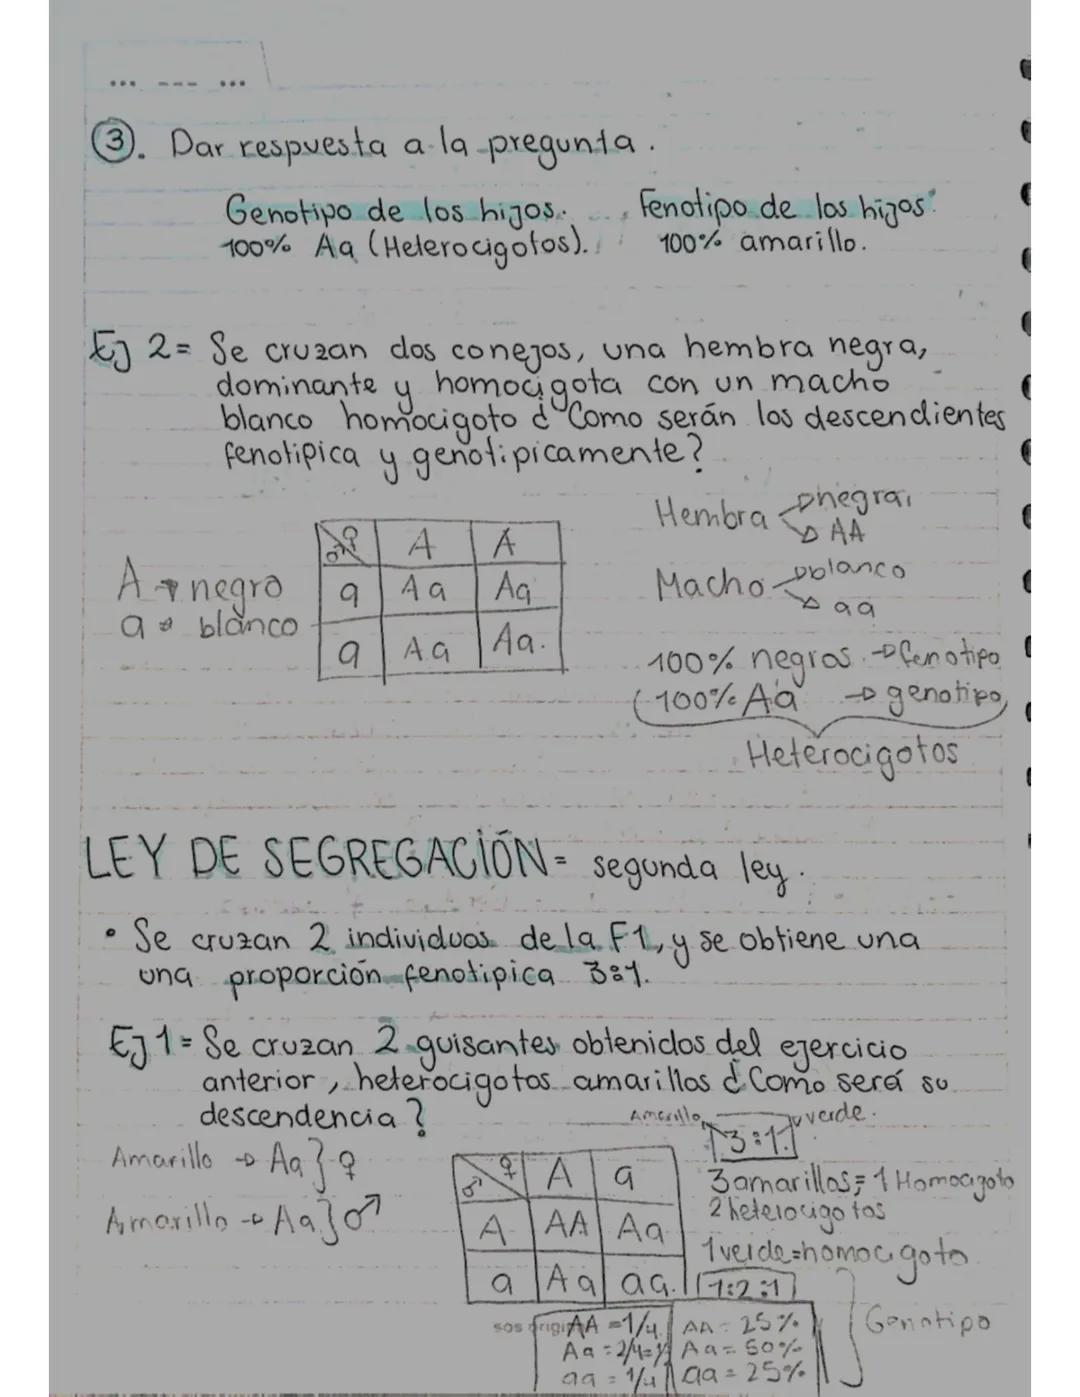 ... --- ...
③. Dar respuesta a la pregunta.
Genotipo de los hijos. Fenotipo de los hijos:
100% Aa (Heterocigotos). 100% amarillo.
Ej 2= Se cruzan dos conejos, una hembra negra,
dominante y homocigota con un macho
blanco homocigoto ¿Como serán los descendientes
fenotipica y genotipicamente?
Hembra → negra
→ AA
Macho → blanco
→ aa
A → negro
a → blanco
♂ ♀ A A
a Aa Aa
a Aa Aa.
100% negros. → fenotipo
(100% Aa → genotipo
Heterocigotos
LEY DE SEGREGACIÓN= segunda ley.
• Se cruzan 2 individuos de la F1, y se obtiene una
una proporción fenotipica 3:1.
Ej 1= Se cruzan 2 guisantes obtenidos del ejercicio
anterior, heterocigotos amarillos ¿Como será su
descendencia?
Amarillo verde.
3:1
Amarillo → Aa } ♀
Amarillo → Aa } ♂
♂ ♀ A a
A AA Aa
a Aa aa.
3 amarillos= 1 Homocigoto
2 heterocigotos
1 verde=homocigoto
1:2:1
Genotipo
AA =1/4 AA= 25%
Aa =2/4= Aa= 50%
aa = 1/4 aa= 25%